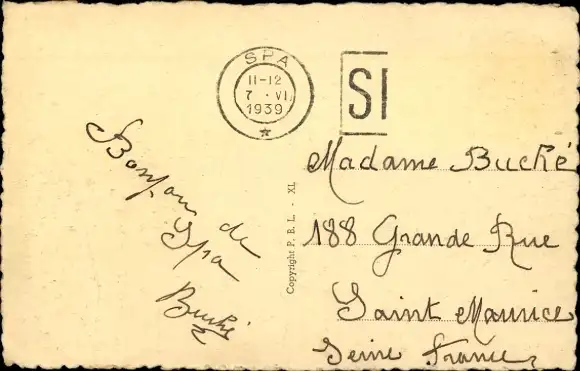 SPA
11-12
7 · VI
1939
SI
Bonjour de
Spa
Buché
Copyright P. B. L. - XL
Madame Buché
188 Grande Rue
Saint Maurice
Seine France